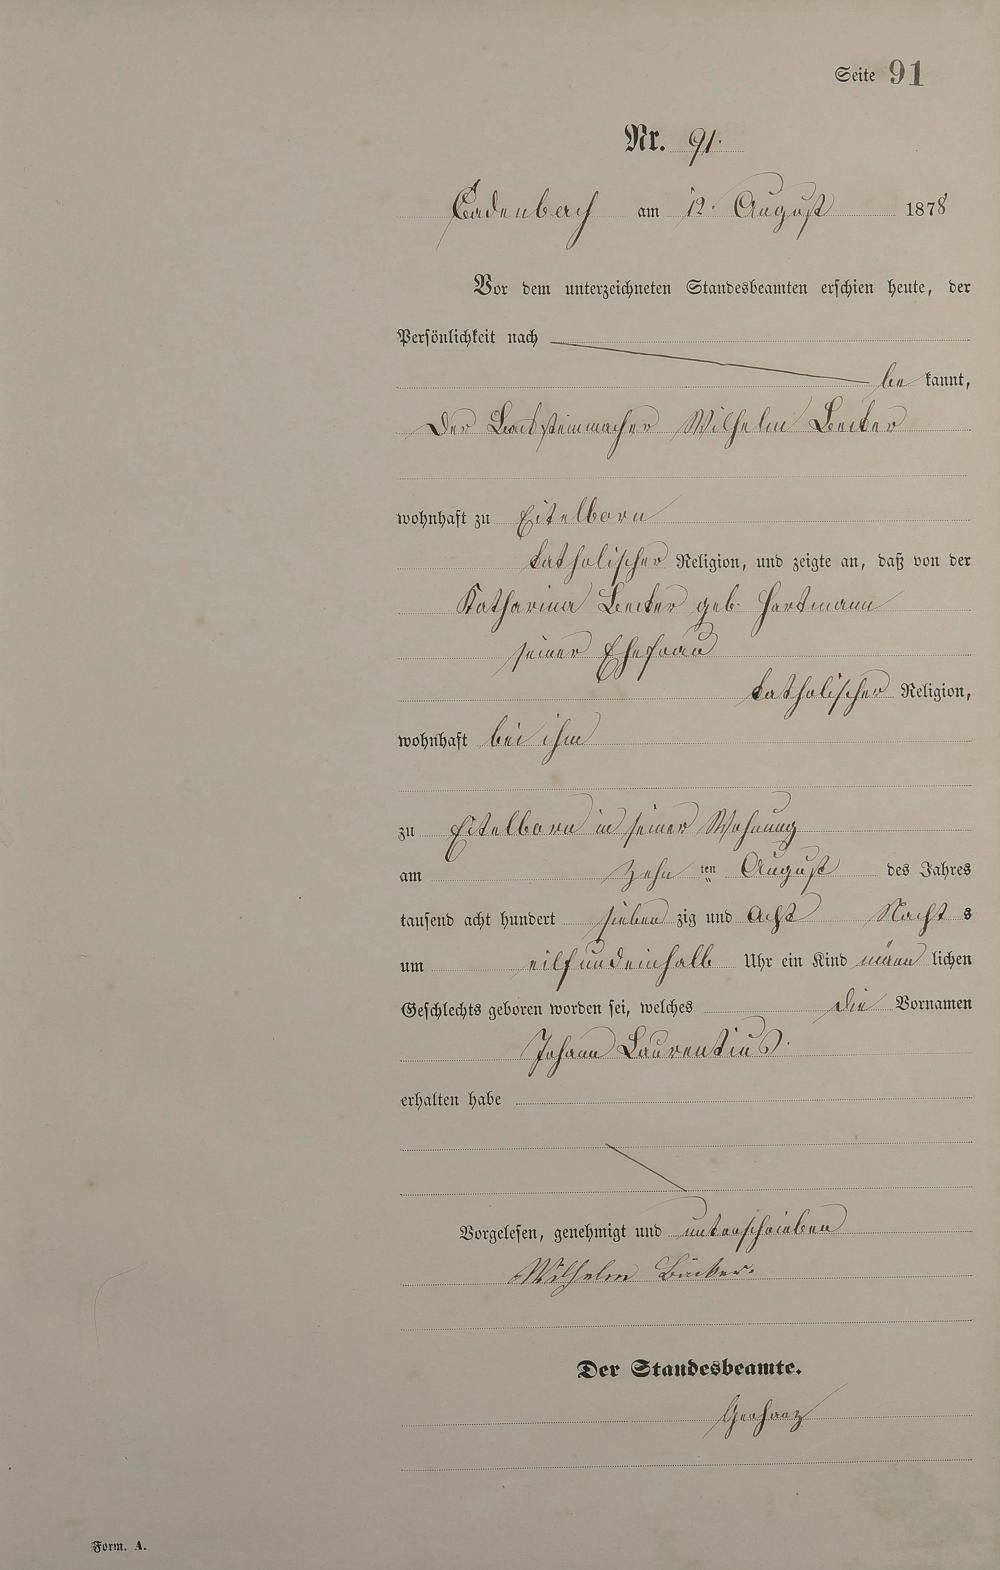 Seite 91
Nr. 91.
Cadenbach am 12. August 1878
Vor dem unterzeichneten Standesbeamten erschien heute, der
Persönlichkeit nach
be kannt,
Der Backsteinmacher Wilhelm Becker
wohnhaft zu Eitelborn
katholischer Religion, und zeigte an, daß von der
Katharina Becker geb. Hartmann
seiner Ehefrau
katholischer Religion,
wohnhaft bei ihm
zu Eitelborn in seiner Wohnung
am zehn ten August des Jahres
tausend acht hundert sieben zig und acht Nacht s
um eilf und einhalb Uhr ein Kind männ lichen
Geschlechts geboren worden sei, welches die Vornamen
Johann Laurentius.
erhalten habe
Vorgelesen, genehmigt und unterschrieben
Wilhelm Bäcker.
Der Standesbeamte.
Gerharz
Form. A.